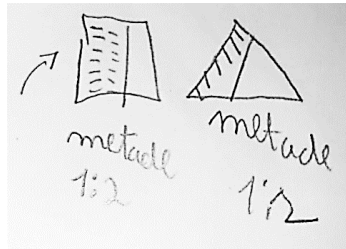 metade
1:2
metade
1:2